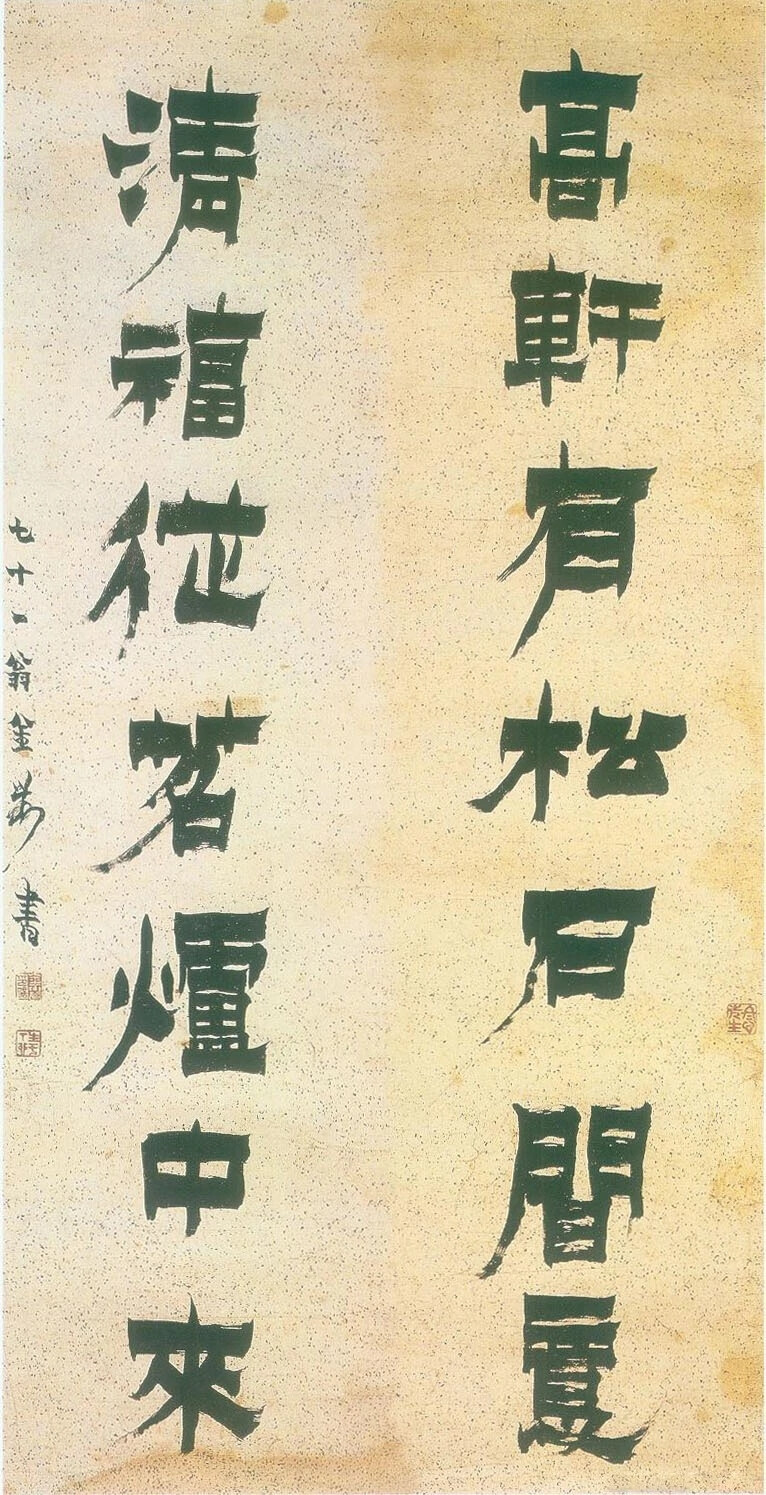 高軒有松石間
清福從茗爐中來
七十一翁金農書